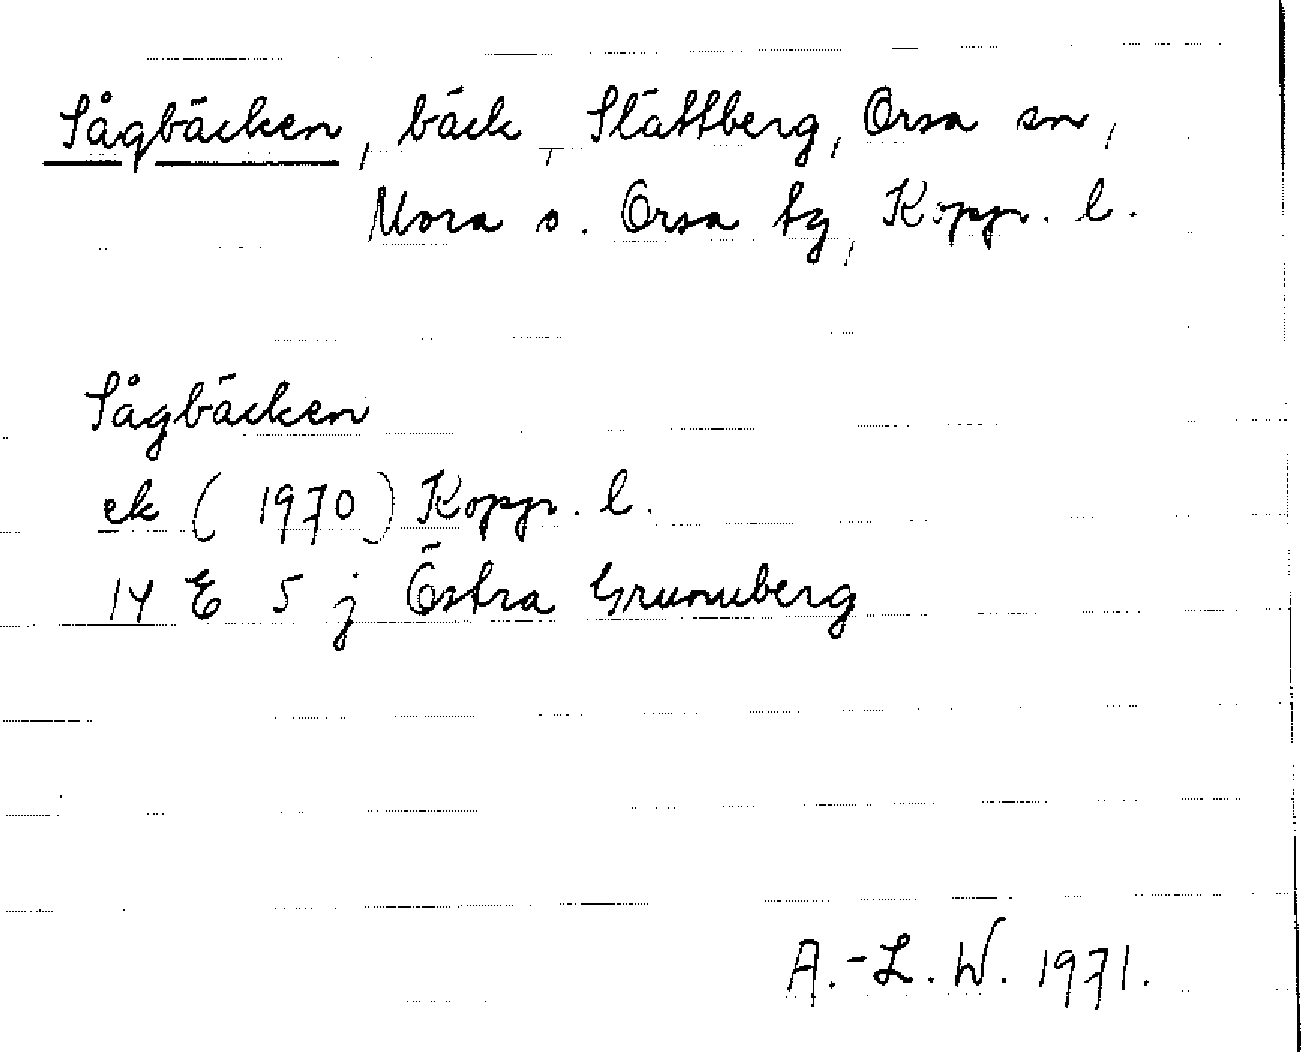 Sågbäcken, bäck, Slättberg, Orsa sn,
Mora o. Orsa tg, Kopp. l.
Sågbäcken
ek (1970) Kopp. l.
14 E 5 j Östra Grunuberg
A.-L. W. 1971.